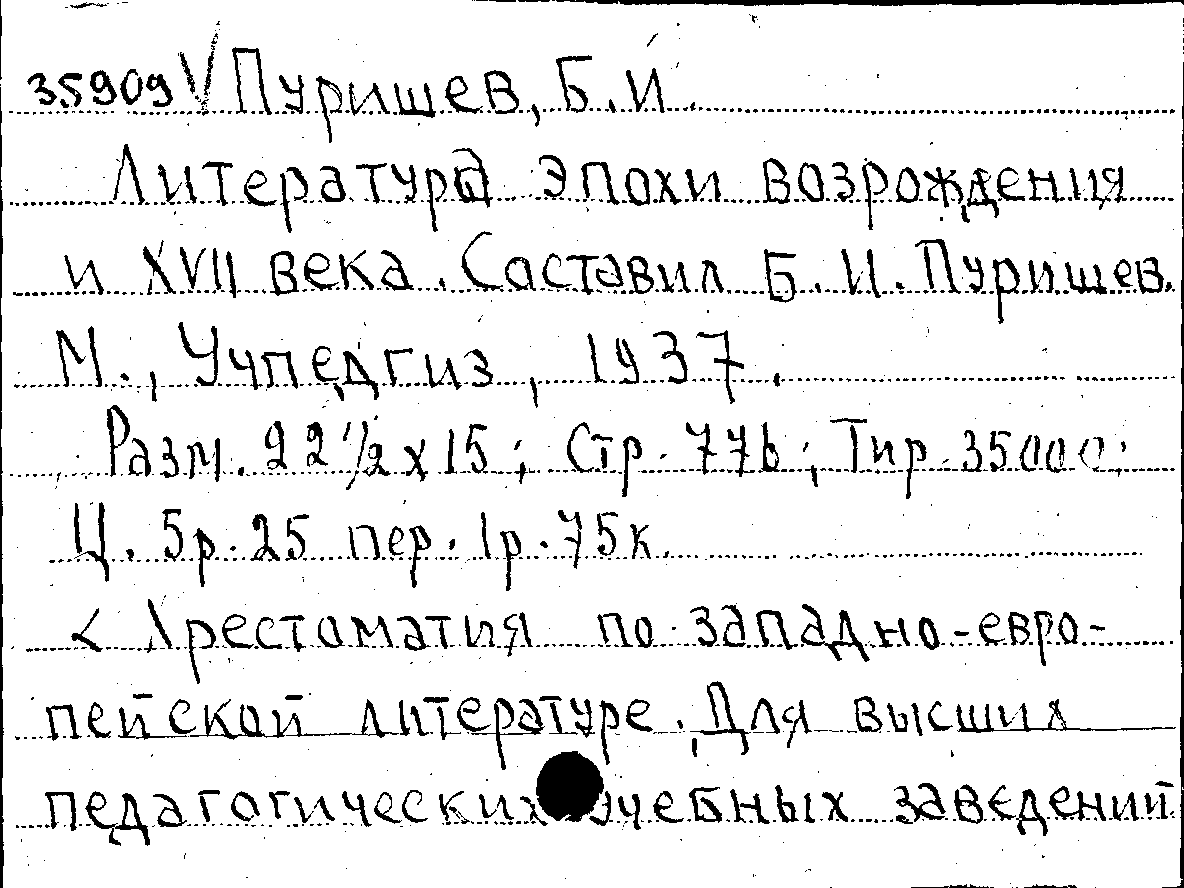 35909 V Пуришев, Б.И.
Литература эпохи возрождения
и XVII века. Составил Б.И. Пуришев.
М., Учпедгиз, 1937.
Разм. 22 1/2 х 15; Стр. 776; Тир. 35000;
Ц. 5р. 25 пер. 1р. 75к.
< Хрестоматия по западно-евро-
пейской литературе. Для высших
педагогических учебных заведений